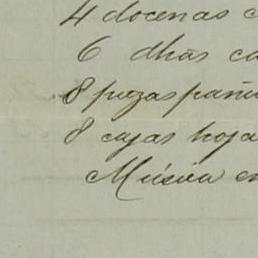 4 docenas c
6 dhas ca
8 piezas pañu
8 cajas hoja
Música en